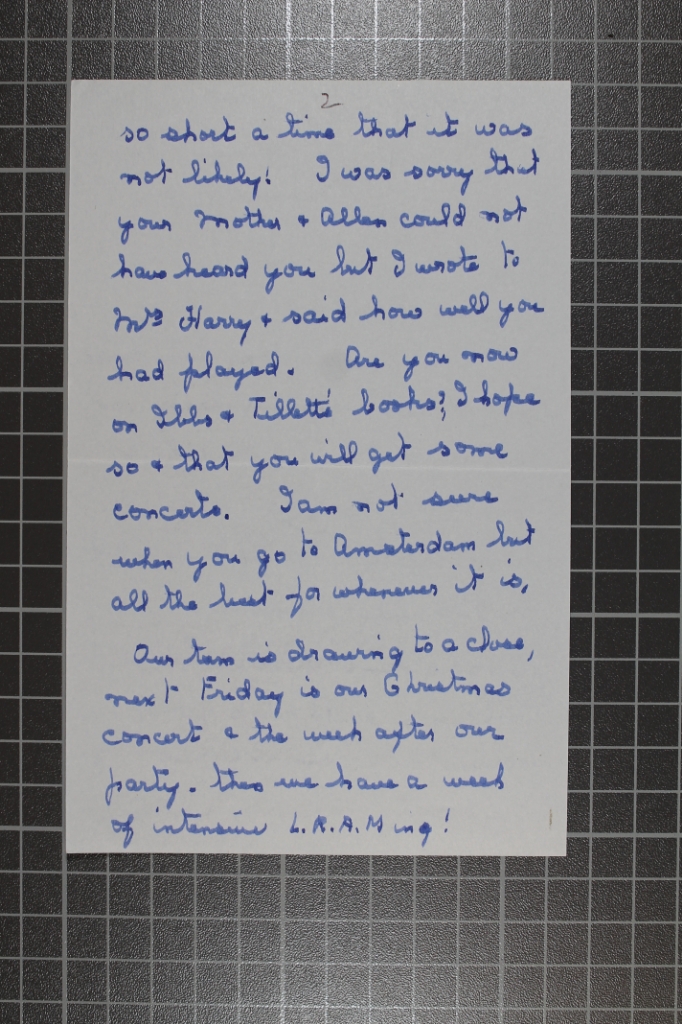 2
so short a time that it was
not likely! I was sorry that
your Mother & Allan could not
have heard you but I wrote to
Mrs Harry & said how well you
had played. Are you now
on Ibbs & Tillett's books? I hope
so & that you will get some
concerts. I am not sure
when you go to Amsterdam but
all the best for whenever it is,
Our term is drawing to a close,
next Friday is our Christmas
concert & the week after our
party. then we have a week
of intensive L.R.A.M ing!